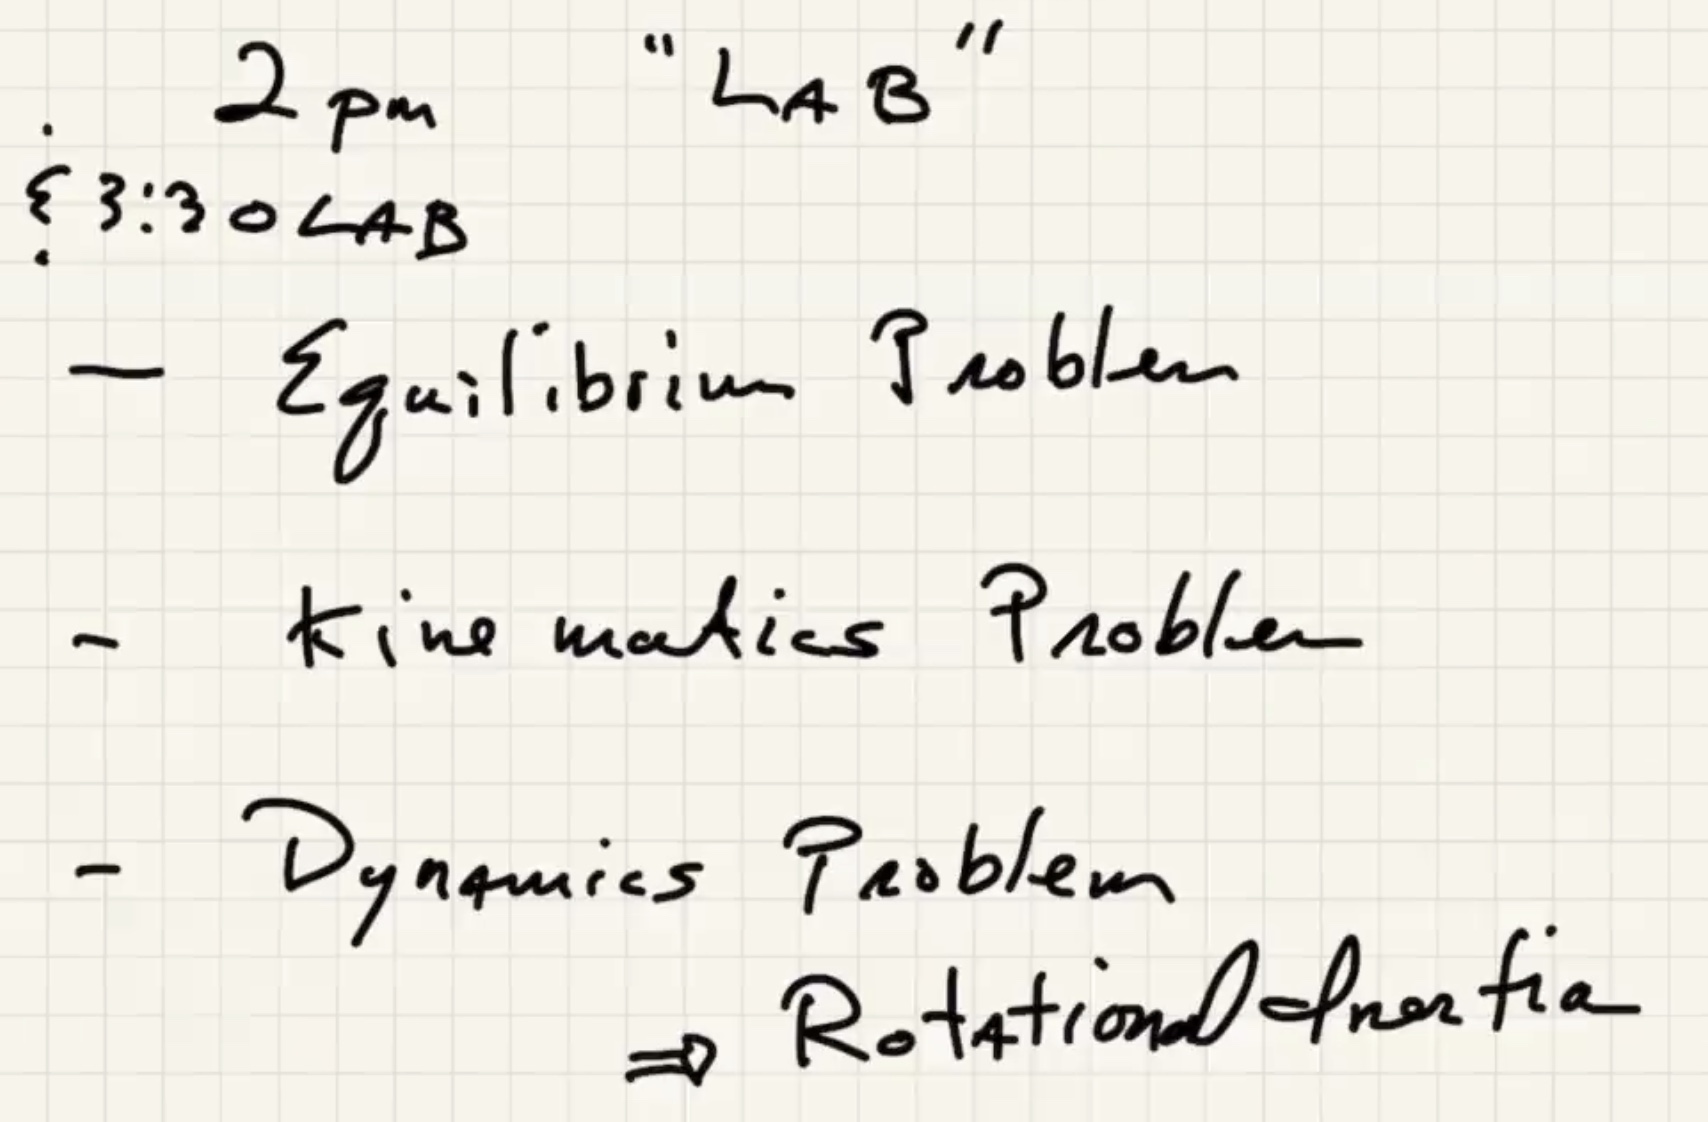 2 pm "LAB"
{ 3:30 LAB
— Equilibrium Problem
- Kinematics Problem
- Dynamics Problem
⇒ Rotational Inertia